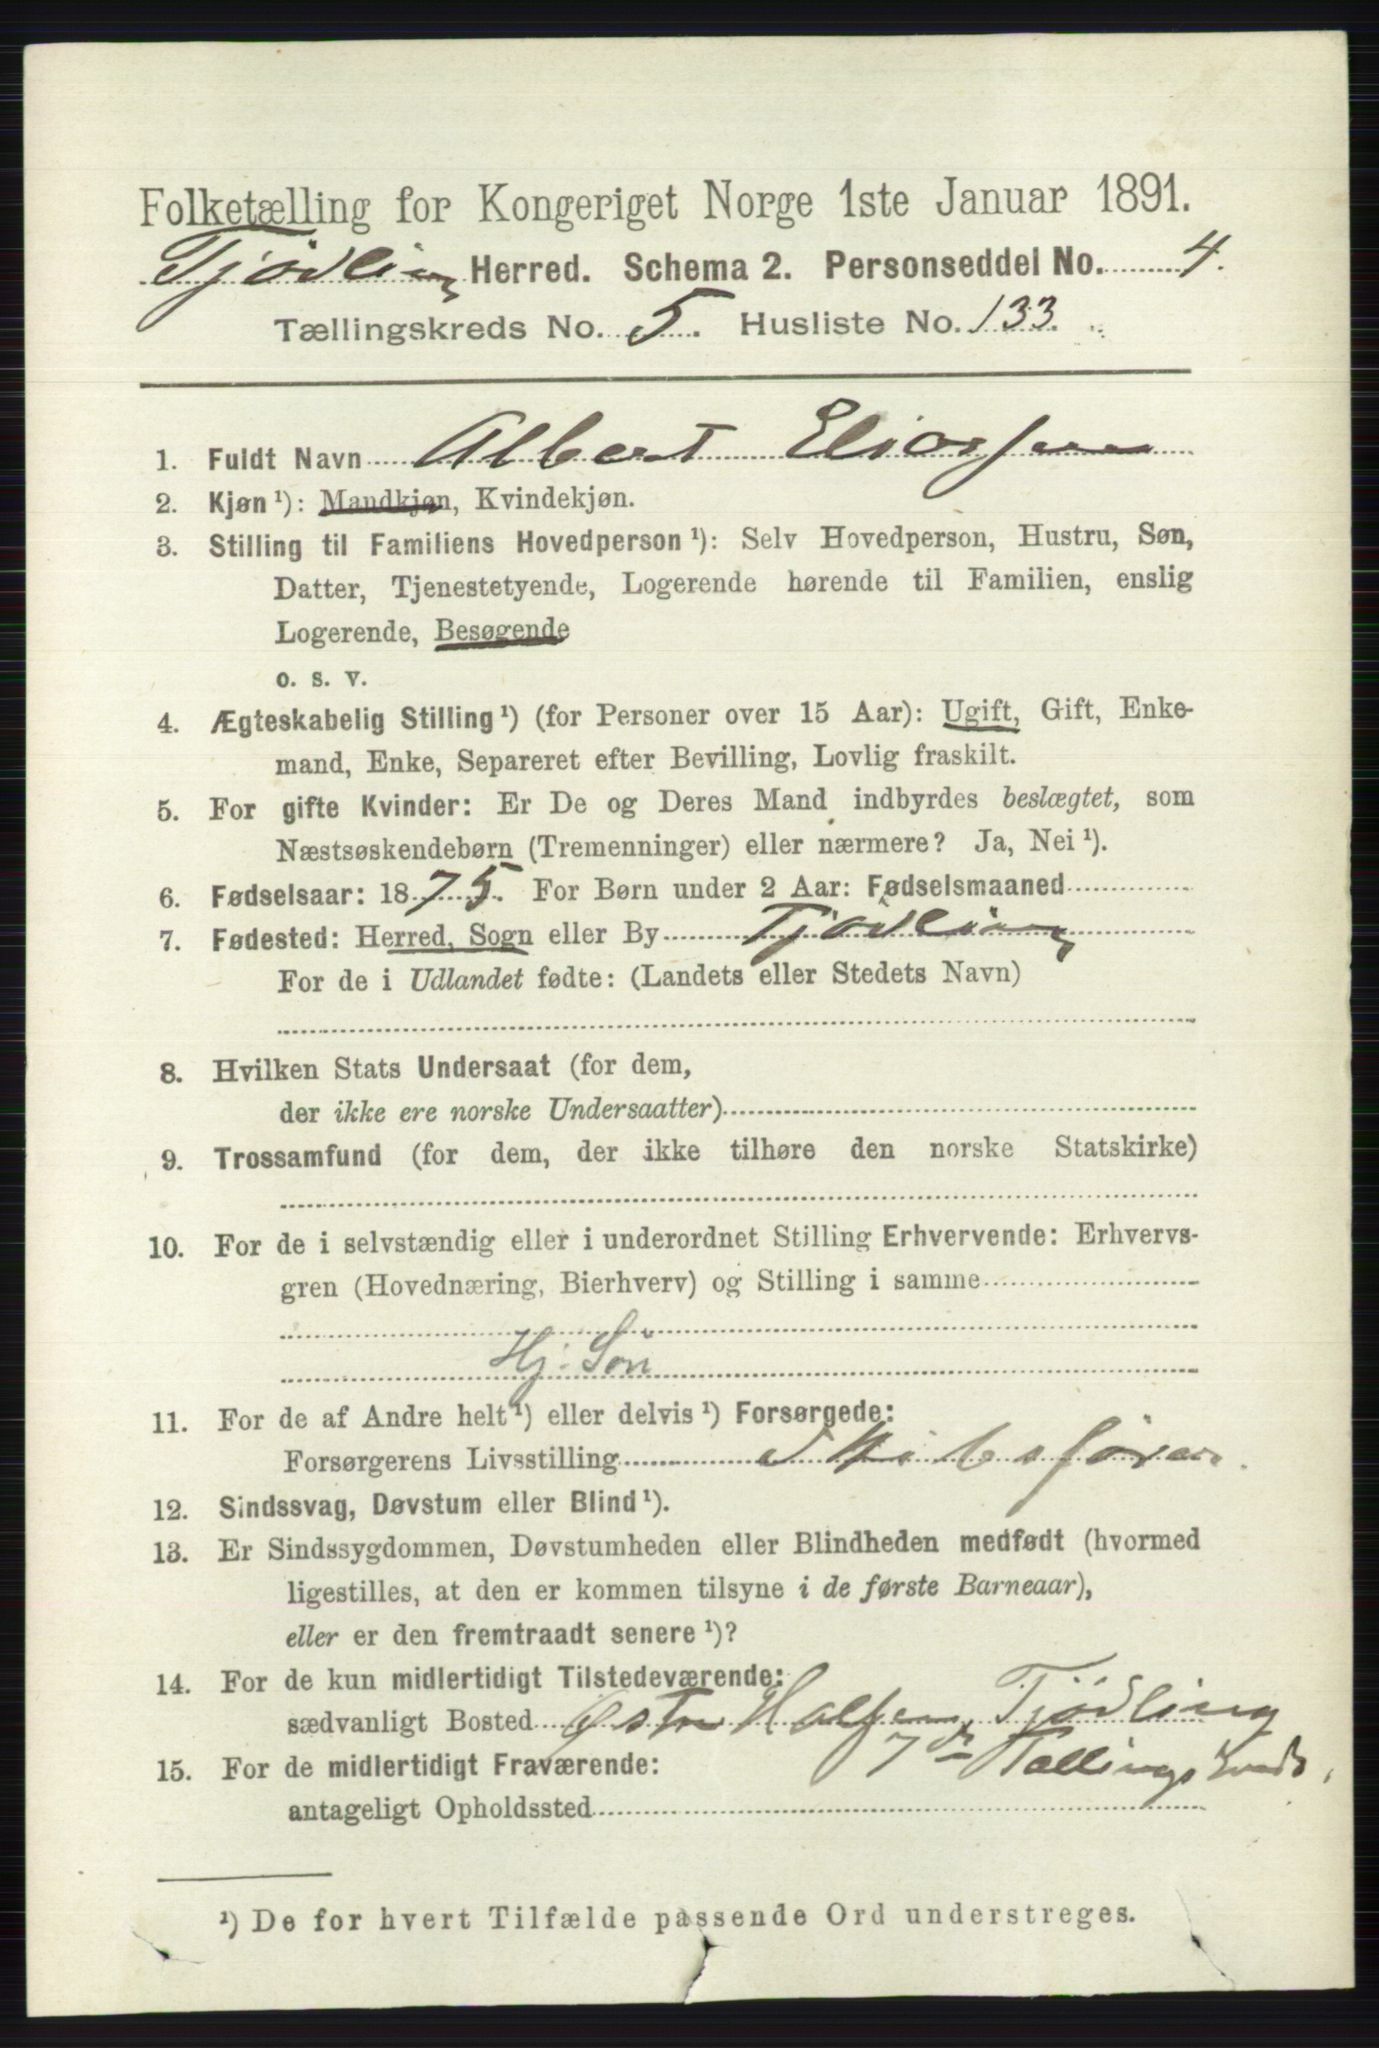 Folketælling for Kongeriget Norge 1ste Januar 1891.
Tjødling Herred. Schema 2. Personseddel No. 4.
Tællingskreds No. 5. Husliste No. 133.
1. Fuldt Navn Albert Eliassen
2. Kjøn¹): Mandkjøn, Kvindekjøn.
3. Stilling til Familiens Hovedperson¹): Selv Hovedperson, Hustru, Søn,
Datter, Tjenestetyende, Logerende hørende til Familien, enslig
Logerende, Besøgende
o. s. v.
4. Ægteskabelig Stilling¹) (for Personer over 15 Aar): Ugift, Gift, Enke-
mand, Enke, Separeret efter Bevilling, Lovlig fraskilt.
5. For gifte Kvinder: Er De og Deres Mand indbyrdes beslægtet, som
Næstsøskendebørn (Tremenninger) eller nærmere? Ja, Nei¹).
6. Fødselsaar: 1875. For Børn under 2 Aar: Fødselsmaaned
7. Fødested: Herred, Sogn eller By Tjødling
For de i Udlandet fødte: (Landets eller Stedets Navn)
8. Hvilken Stats Undersaat (for dem,
der ikke ere norske Undersaatter)
9. Trossamfund (for dem, der ikke tilhøre den norske Statskirke)
10. For de i selvstændig eller i underordnet Stilling Erhvervende: Erhvervs-
gren (Hovednæring, Bierhverv) og Stilling i samme
Hj. Søn
11. For de af Andre helt¹) eller delvis¹) Forsørgede:
Forsørgerens Livsstilling Skibsfører.
12. Sindssvag, Døvstum eller Blind¹).
13. Er Sindssygdommen, Døvstumheden eller Blindheden medfødt (hvormed
ligestilles, at den er kommen tilsyne i de første Barneaar),
eller er den fremtraadt senere¹)?
14. For de kun midlertidigt Tilstedeværende:
sædvanligt Bosted Østre Halsen, Tjødling
7de Tællingskreds.
15. For de midlertidigt Fraværende:
antageligt Opholdssted
¹) De for hvert Tilfælde passende Ord understreges.